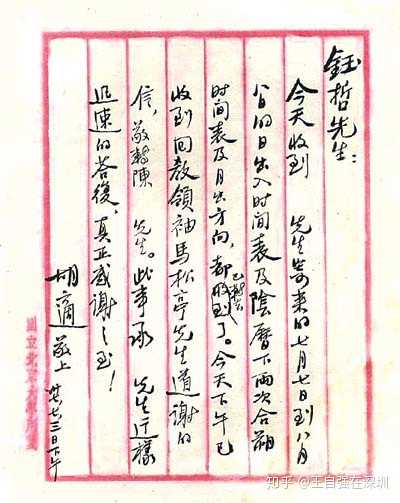 鈺哲先生：
今天收到 先生寄来的七月七日到八月
八日的日出入时间表及陰曆下兩次合朔
时间表及月出方向，都收到了。今天下午已
收到回教領袖馬松亭先生道謝的
信，敬轉陳 先生。此事承 先生这樣
迅速的答復，真正感謝之至！
胡適敬上 七三日下午
國立北京大學用箋
知乎 @王自强在深圳